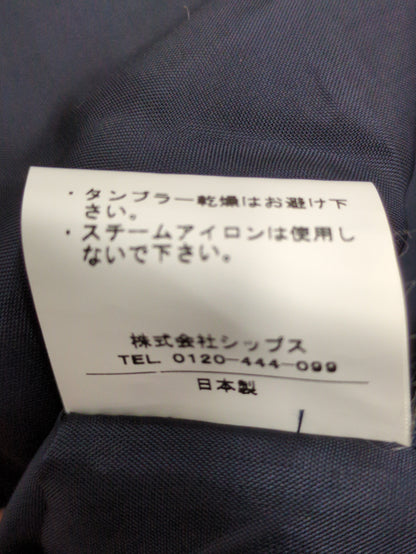 ・タンブラー乾燥はお避け下
さい。
・スチームアイロンは使用し
ないで下さい。
株式会社シップス
TEL. 0120-444-099
日本製